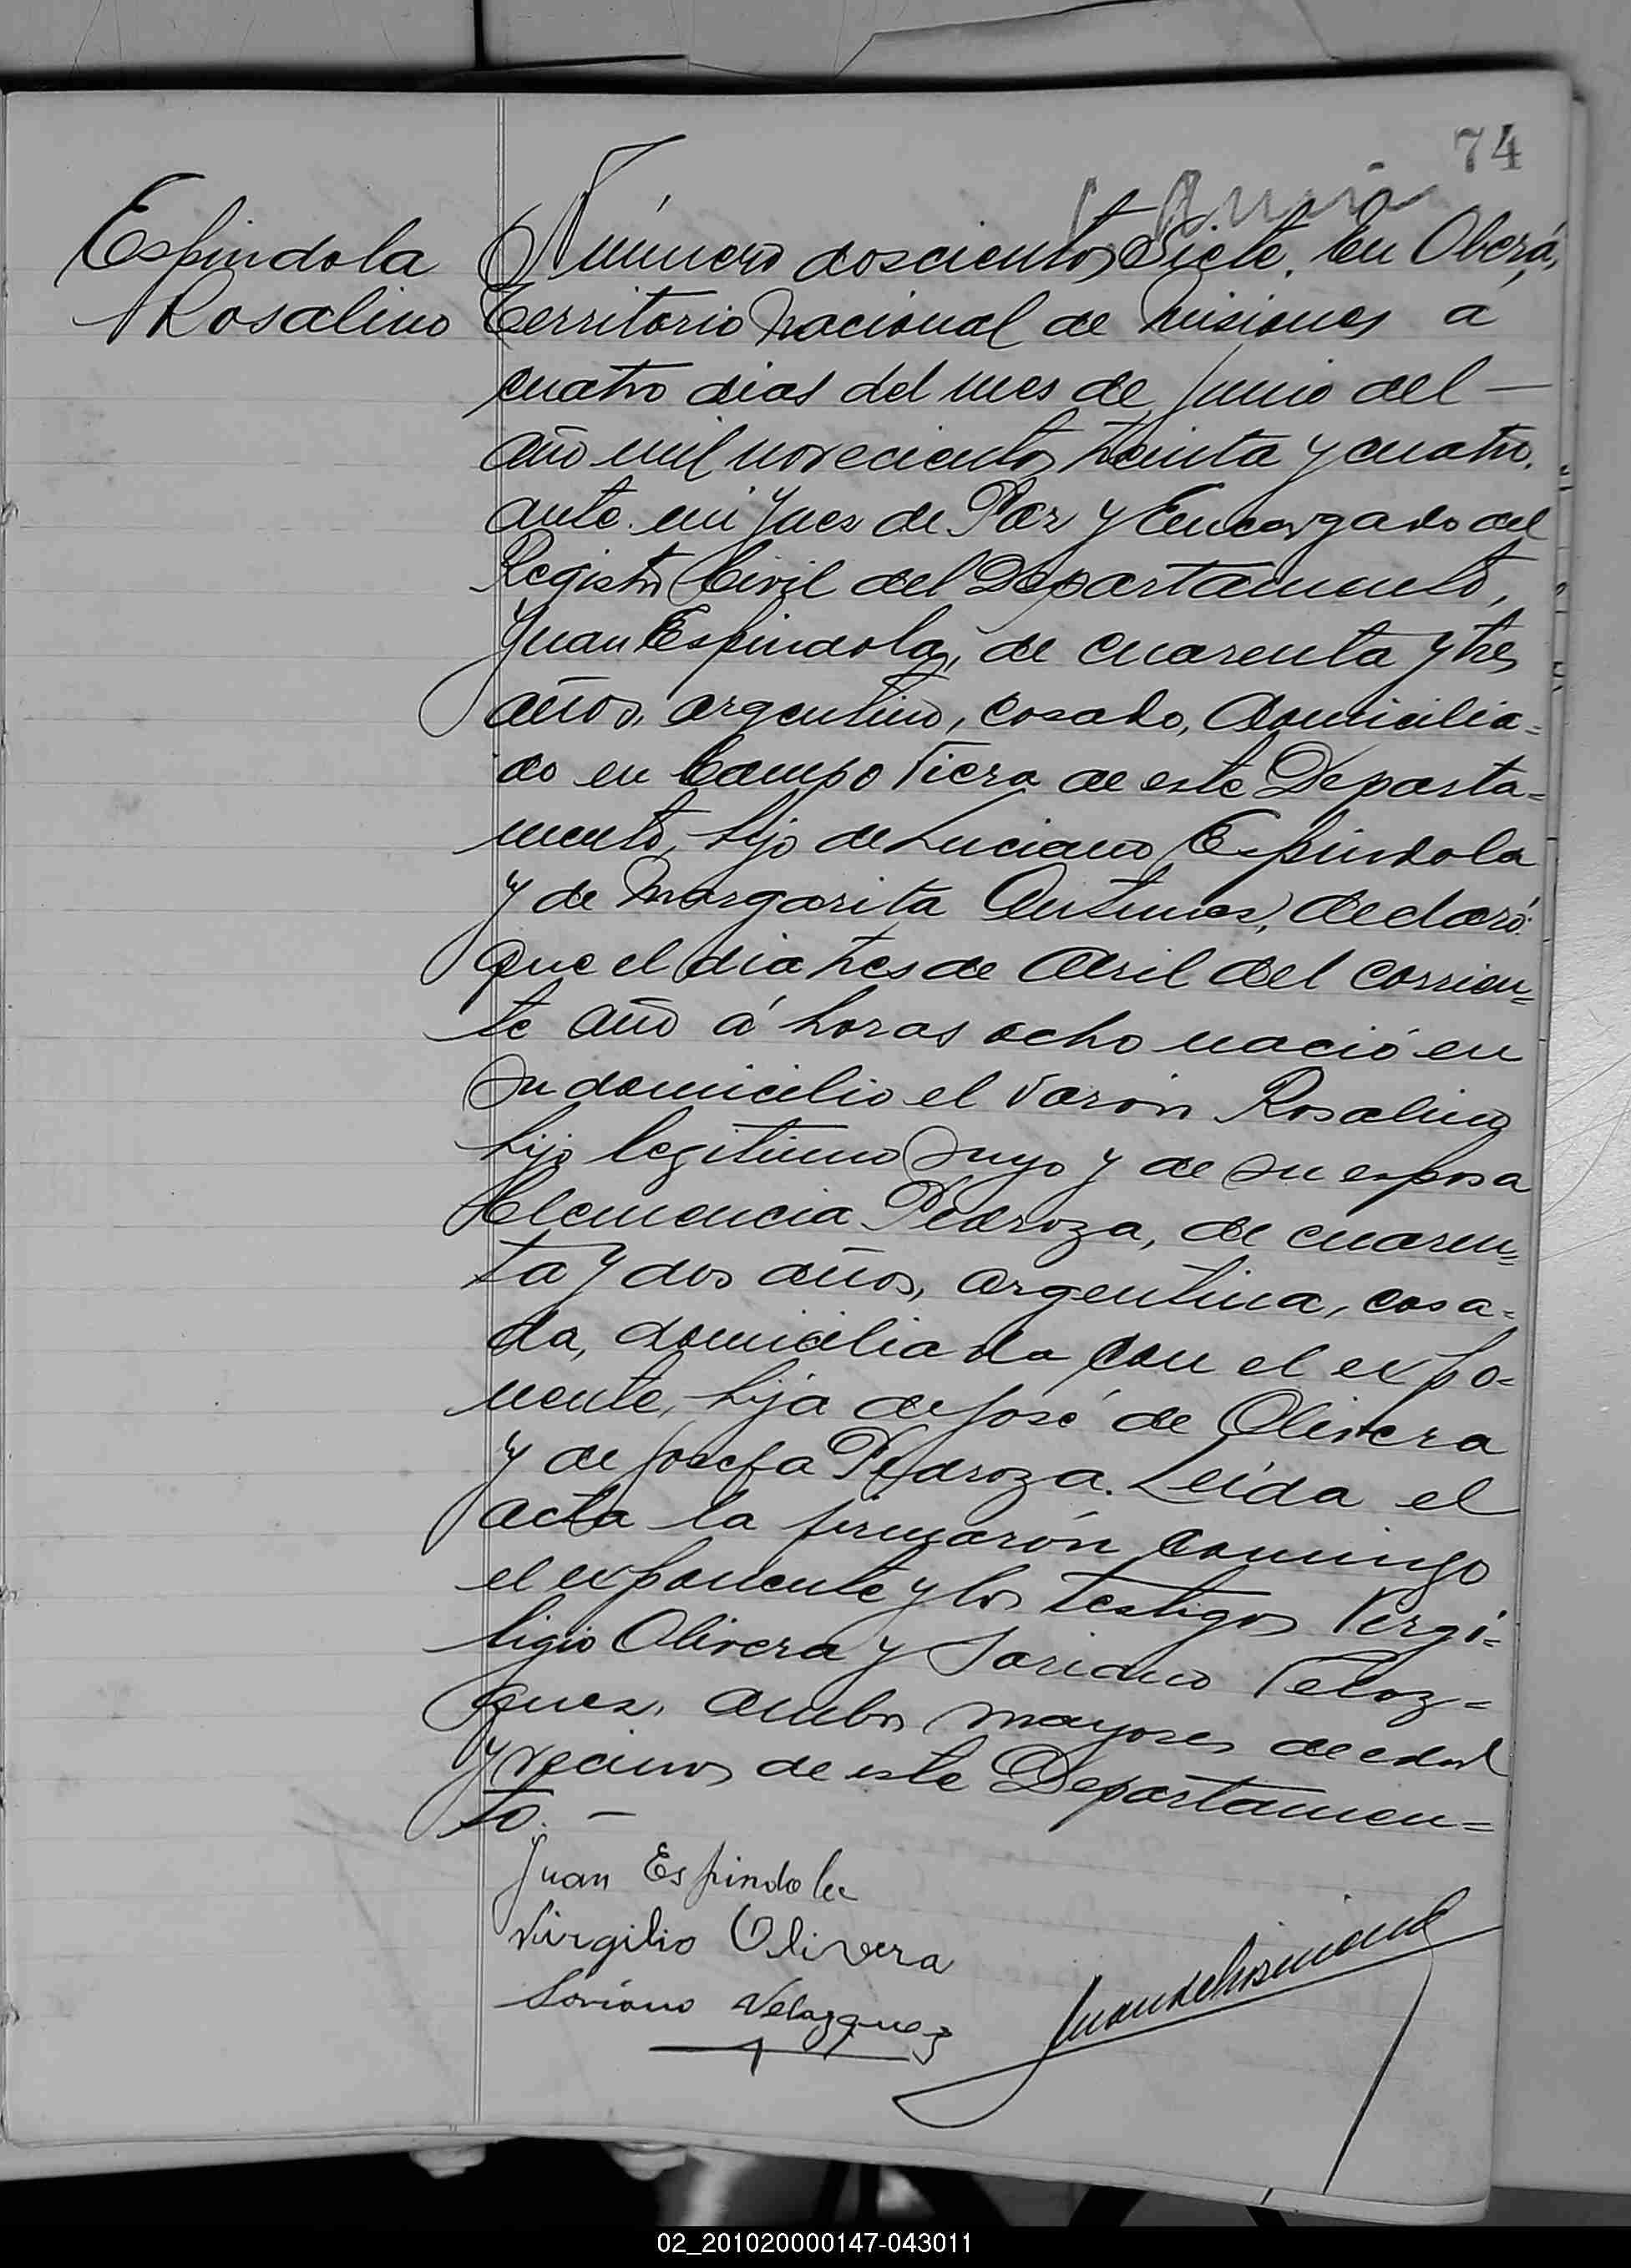 74
Espindola
Rosalino
Número doscientos Siete. En Oberá,
Territorio Nacional de Misiones á
cuatro dias del mes de Junio del —
año mil novecientos treinta y cuatro.
ante mi Juez de Paz y Encargado del
Registro Civil del Departamento,
Juan Espindola, de cuarenta y tres
años, argentino, casado, domicilia=
do en Campo Viera de este Departa=
mento, hijo de Luciano Espindola
y de Margarita Antunes, declaró:
que el dia tres de Abril del corrien=
te año á horas ocho nació en
su domicilio el varón Rosalino
hijo legitimo suyo y de su esposa
Clemencia Pedroza, de cuaren=
ta y dos años, argentina, casa=
da, domiciliada con el expo=
nente, hija de José de Olivera
y de Josefa Pedroza. Leida el
acta la firmarón conmigo
el exponente y los testigos Virgi=
ligio Olivera y Soriano Velaz=
quez, ambos mayores de edad
y vecinos de este Departamen=
to. —
Juan Espindola
Virgilio Olivera
Soriano Velazquez
02_201020000147-043011